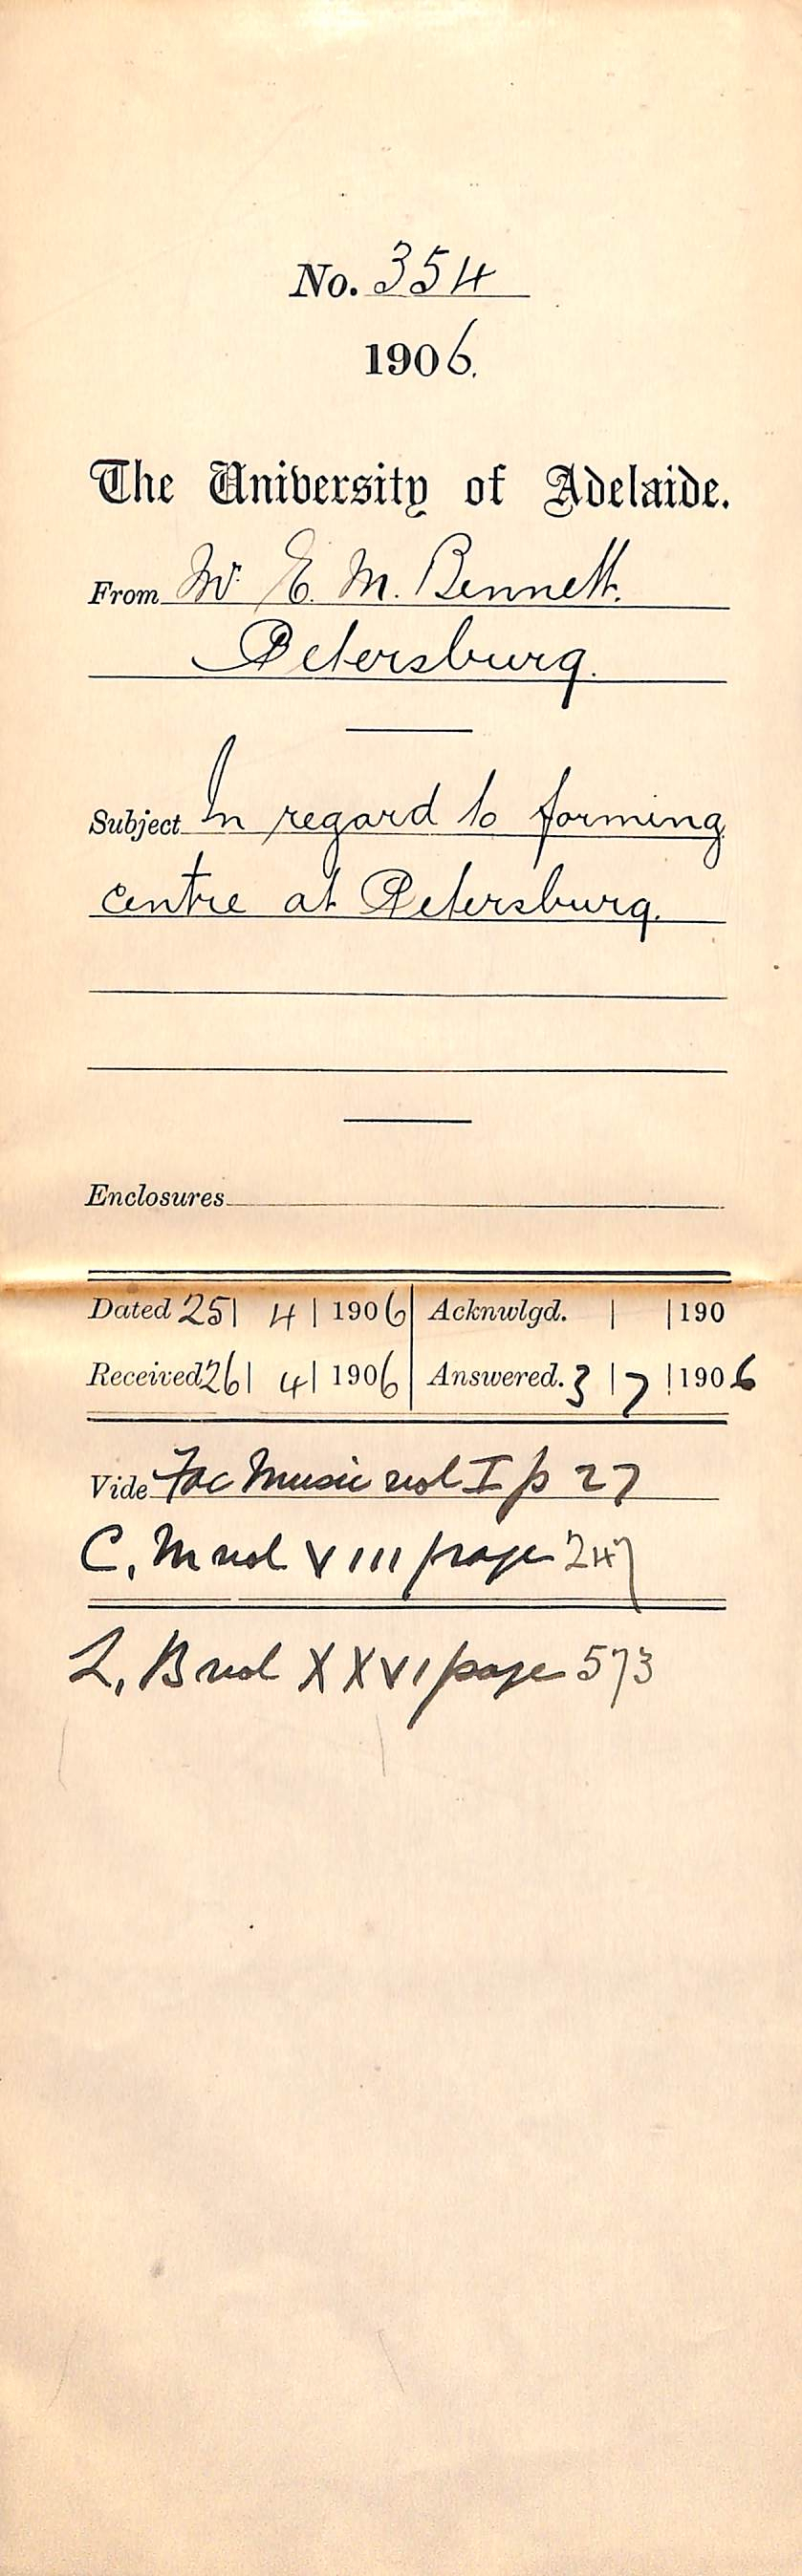 No. 354
1906.
The University of Adelaide.
From Mr. E. M. Bennett.
Petersburg.
Subject In regard to forming
centre at Petersburg.
Enclosures
Dated 25| 4| 1906 Acknwlgd. | |190
Received 26| 4| 1906 Answered. 3 |7 |1906
Vide Fac Music vol I p 27
C. M vol VIII page 247
L. B vol XXVI page 573